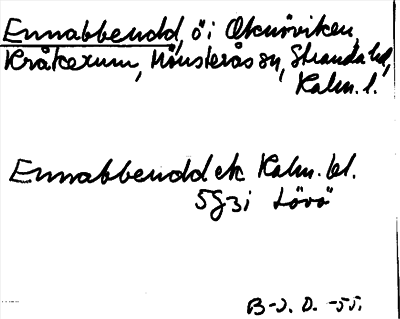 Ennabbendd, ö i Oknöviken,
Kråkerum, Mönsterås sn, Stranda hd,
Kalm. l.
Ennabbendd ek Kalm. bl.
5g3i Lövö
B-J. O. -55.